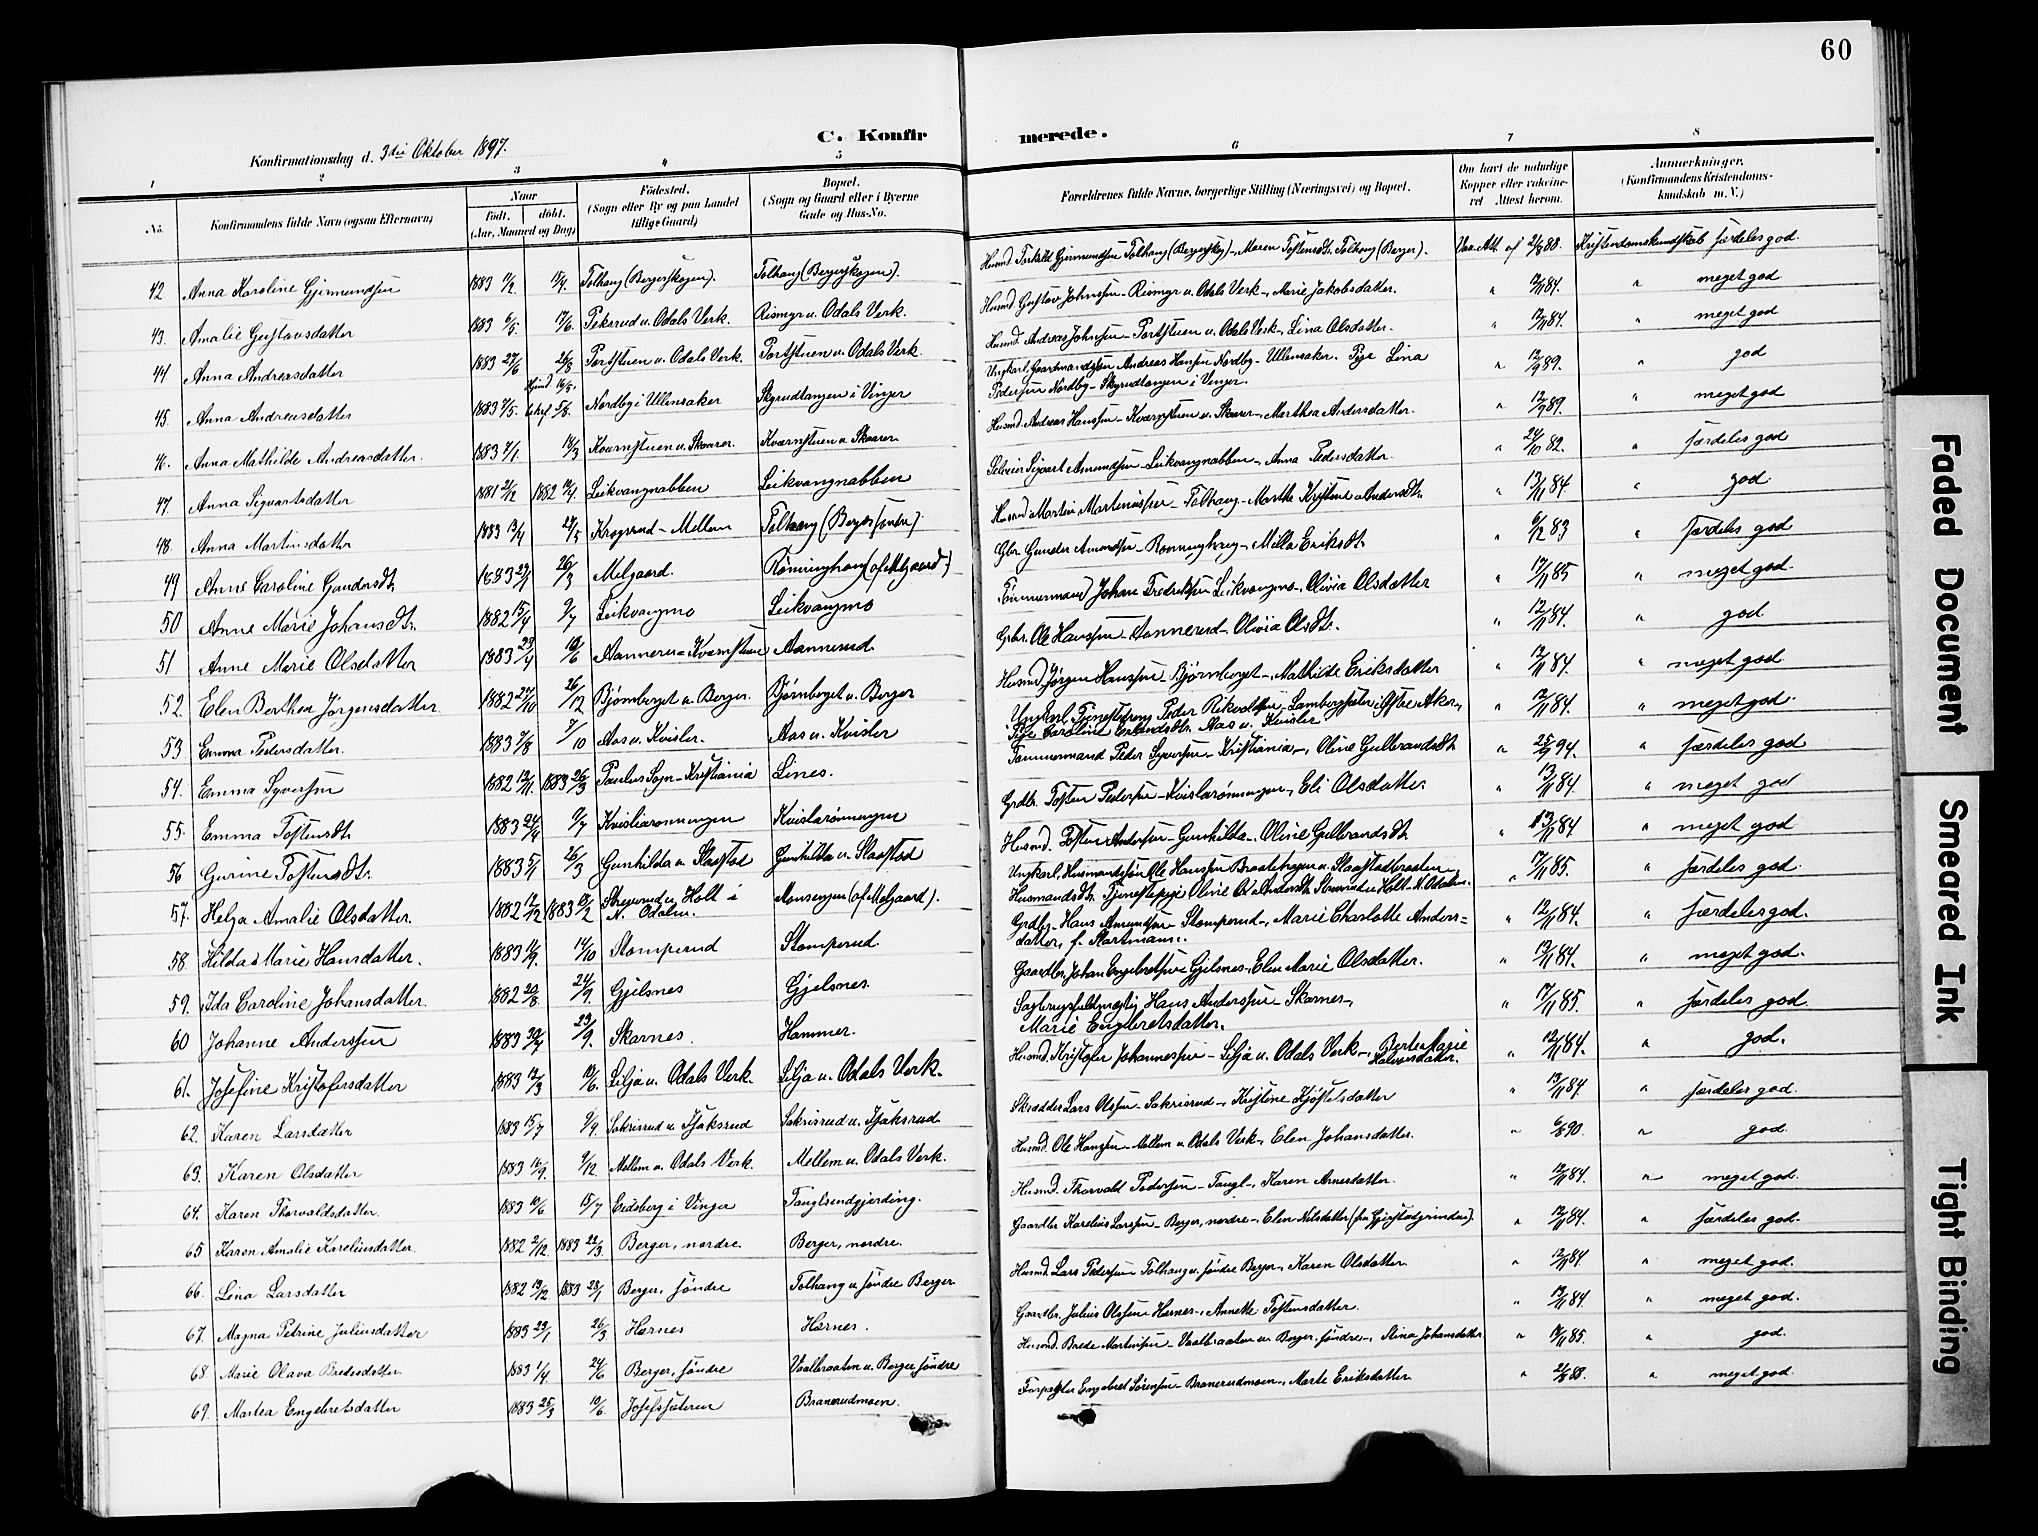 60
C. Konfirmerede.
Konfirmationsdag d. 3die Oktober 1897.
1 2 3 4 5 6 7 8
No. Konfirmandens fulde Navn (ogsaa Efternavn) Naar født. døbt. (Aar, Maaned og Dag) Fødested. (Sogn eller By og paa Landet tillige Gaard) Bopæl. (Sogn og Gaard eller i Byerne Gade og Hus-No. Forældrenes fulde Navne, borgerlige Stilling (Næringsvei) og Bopæl. Om havt de naturlige Kopper eller vakcineret Attest herom. Anmærkninger. (Konfirmandens Kristendomskundskab m. V.)
42 Anna Karoline Gjermundsen 1883 Tolhaug (Bergerskogen). Tolhaug (Bergerskogen). Husmd. Gjermundsen Tolhaug - Maren Tostensdt. Tolhaug (Berger). Vac. Att. af 2/8 88. Kristendomskundskab særdeles god.
43. Amalie Gustavsdatter 1883 6/5 17/6. Pekerud u. Odals Verk. Rismyr u. Odals Verk. Husmd. Gustav Johnsen - Rismyr u. Odals Verk -, Marie Jakobsdatter. " 12/11 84. " meget god
44 Anna Andreasdatter 1883 27/6 26/8 Portstuen u. Odals Verk. Portstuen u. Odals Verk. Husmd. Andreas Johnsen - Portstuen u. Odals Verk -, Lina Olsdatter. " 12/11 84. " meget god
45. Anna Andreasdatter 1883 7/5. Nordby i Ullensaker Skyrudtangen i Vinger Ungkarl, Gaardmandssøn Andreas Hansen Nordby - Ullensaker. Pige Lina Pedersen Nordby - Skyrudtangen i Vinger. " 12/9 89. " god
46. Anna Mathilde Andreasdatter. 1883 7/1 18/3 Kværnstuen u. Skaarer. Kværnstuen u. Skaarer Husmd. Andreas Hansen - Kværnstuen u. Skaarer -, Marthea Andersdatter. " 12/9 89. " meget god
47. Anna Sigvartsdatter 1881 21/12 1882 Leikvangnabben Leikvangnabben Sigvart Amundsen - Leikvangnabben - Anna Pedersdatter " 24/10 82. " særdeles god
48. Anna Martinsdatter 1883 13/4 27/5 Krogsrud - Mellem Tolhaug (Berger søndre). Husmd. Martin Martinussen - Tolhaug - Marthe Kristine Andersdt. " 13/11 84 " god
49 Anne Caroline Gundersdt. 1883 26/3 Melgaard. Rønninghaug (af Melgaard.) Gbr. Gunder Amundsen - Rønninghaug -, Milla Eriksdt. " 6/2 83 " særdeles god
50 Anne Marie Johansdtr. 1882 15/4 9/7 Leikvangmo Leikvangmo Tømmermand Johan Fredriksen Leikvangmo -, Olivia Olsdatter " 17/11 85 " meget god.
51 Anne Marie Olsdatter 1883 23/4 10/6 Aannerud - Kværnstuen Aannerud. Grbr. Ole Hansen - Aannerud - Olivia Olsdtr. " 12/11 84. " god
52. Elen Berthea Jørgensdatter 1882 27/10 26/12 Bjørnberget u. Berger. Bjørnberget u. Berger Husmd. Jørgen Hansen - Bjørnberget -, Mathilde Eriksdatter " 12/11 84. " meget god
53 Emma Pedersdatter. 1883 7/8 7/10 Aas u. Kvisler. Aas u. Kvisler Ungkarl, Tjenestedreng Peder Rikvaldsen - i Østre Aker, Pige Caroline Erlandsdtr. Aas u. Kvisler " 12/11 84. " meget god.
54. Emma Syversen 1882 12/11. 1883 26/3 Paulus Sogn - Kristiania Lines. Tømmermand Peder Syversen - Kristiania -, Oline Gulbrandsdt. " 25/9 94. " særdeles god
55. Emma Tostensdt. 1883 24/4 9/7 Kvislarønningen Kvislarønningen Grdbr. Tosten Pedersen - Kvislarønningen -, Eli Olsdatter " 13/11 84 " meget god
56 Gurine Tostensdtr. 1883 5/1 26/3 Gunhilda u. Slaastad Gunhilda u. Slaastad Husmd. Tosten Andersen - Gunhilda -, Oline Gulbrandsdt. " 13/11 84 " meget god
57. Helga Amalie Olsdatter. 1882 12/12 1883 18/2 Holt i N. Odalen. Monsengen (af Melgaard). Ungkarl, Husmandssøn Ole Hansen u. Slaastadbraaten Husmandsdt. Tjenestepige Olivie Andersdt. u. Holt N. Odalen. " 17/11 85. " særdeles god.
58. Hilda Marie Hansdatter. 1883 11/9. 14/10 Stomperud Stomperud. Grdbr. Hans Amundsen Stomperud -, Marie Charlotte Andersdatter, f. Startmann. " 12/11 84. " særdeles god.
59. Ida Caroline Johansdatter. 1882 29/8 24/9. Gjelsnes Gjelsnes. Gaardbr. Johan Engebretsen Gjelsnes -, Elen Marie Olsdatter. " 13/11 84. " meget god.
60 Johanne Andersen 1883 30/7 23/9. Skarnes. Hammer. Sagbrugsfuldmægtig Hans Andersen - Skarnes -, Marie Engebretsdatter. " 17/11 85. " særdeles god.
61. Josefine Kristofersdatter 1883 12/3 10/6. Lilja u. Odals Verk. Lilja u. Odals Verk. Husmd. Kristofer Johannessen - Lilja u. Odals Verk -, Berte Marie Halvorsdatter. " 12/11 84. " god.
62. Karen Larsdatter 1883 15/7 9/9. Sakrisrud u. Isaksrud Sakrisrud u. Isaksrud Skrædder Lars Olsen - Sakrisrud -, Kristine Kjøstelsdatter " 13/11 84 " særdeles god.
63. Karen Olsdatter 1883 16/9. 9/12. Mellem u. Odals Verk. Mellem u. Odals Verk. Husmd. Ole Hansen - Mellem u. Odals Verk -, Elen Johansdatter. " 6/8 90. " god.
64. Karen Thorvaldsdatter. 1883 10/6 15/7 Eidsberg i Vinger Tauglsundgjerding. Husmd. Thorvald Pedersen - Taugl -, Karen Arnesdatter. " 12/11 84. " meget god.
65 Karen Amalie Kareliusdatter. 1882 2/12 1883 22/3. Berger, nordre. Berger, nordre. Gaardbr. Karelius Larssen - Berger, nordre -, Elen Nilsdatter. " 12/11 84. " særdeles god.
66. Lina Larsdatter 1882 13/12 1883 28/1 Berger, søndre Tolhaug u. søndre Berger Husmd. Lars Pedersen Tolhaug u. søndre Berger -, Karen Olsdatter. " 12/11 84 " meget god.
67. Magna Petrine Juliusdatter 1883 23/1 26/3 Hernes Hernes. Gaardbr. Julius Olsen Hernes -, Annette Tostensdatter. " 13/11 84. " meget god.
68. Marie Olava Bredesdatter 1883 1/4 24/6 Berger, søndre Vaalbraaten u. Berger, søndre Husmd. Brede Martinsen - Vaalbraaten u. Berger, søndre -, Stina Johansdatter " 85. " god.
69. Martea Engebretsdatter 1883 25/3 10/6. Josefssæteren Branerudmoen. Forpagter Engebret Sørensen - Branerudmoen -, Marte Eriksdatter " 2/8 88. " meget god
Faded Document
Smeared Ink
Tight Binding